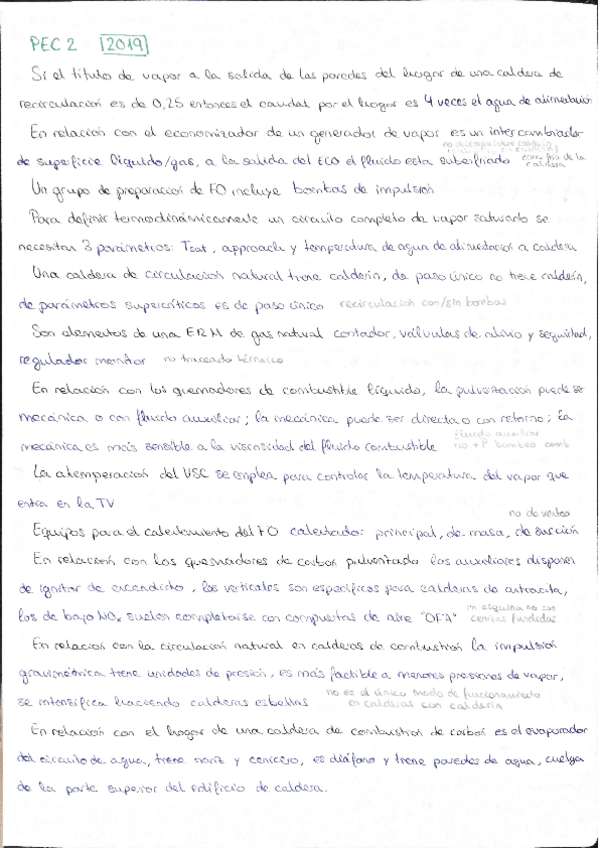 PEC 2 2019
Si el título de vapor a la salida de las paredes del hogar de una caldera de
recirculación es de 0,25 entonces el caudal por el hogar es 4 veces el agua de alimentación
En relación con el economizador de un generador de vapor es un intercambiador
de superficie líquido/gas, a la salida del ECO el fluido esta subenfriado
caldera
Un grupo de preparación de FO incluye bombas de impulsión
Para definir termodinámicamente un circuito completo de vapor saturado se
necesitan 3 parámetros: Tsat, approach y temperatura de agua de alimentación a caldera
Una caldera de circulación natural tiene calderín, de paso único no tiene calderín,
de parámetros supercríticos es de paso único recirculación con/sin bombas
Son elementos de una ERM de gas natural contador, válvulas de alivio y seguridad,
regulador monitor no traceado térmico
En relación con los quemadores de combustible líquido, la pulverización puede ser
mecánica o con fluido auxiliar; la mecánica puede ser directa o con retorno; la
mecánica es más sensible a la viscosidad del fluido combustible fluido auxiliar
no ↑P bombeo comb
La atemperación del VSC se emplea para controlar la temperatura del vapor que
entra en la TV
no de venteo
Equipos para el calentamiento del FO calentador principal, de masa, de succión
En relación con los quemadores de carbón pulverizado los auxiliares disponen
de ignitor de encendido, los verticales son específicos para calderas de antracita,
los de bajo NOx suelen completarse con compuertas de aire "OFA" en esquina no son
cenizas fundidas
En relación con la circulación natural en calderas de combustión la impulsión
gravimétrica tiene unidades de presión, es más factible a menores presiones de vapor,
se intensifica haciendo calderas esbeltas no es el único modo de funcionamiento
en calderas con calderín
En relación con el hogar de una caldera de combustión de carbón es el evaporador
del circuito de agua, tiene nariz y cenicero, es diáfano y tiene paredes de agua, cuelga
de la parte superior del edificio de caldera.